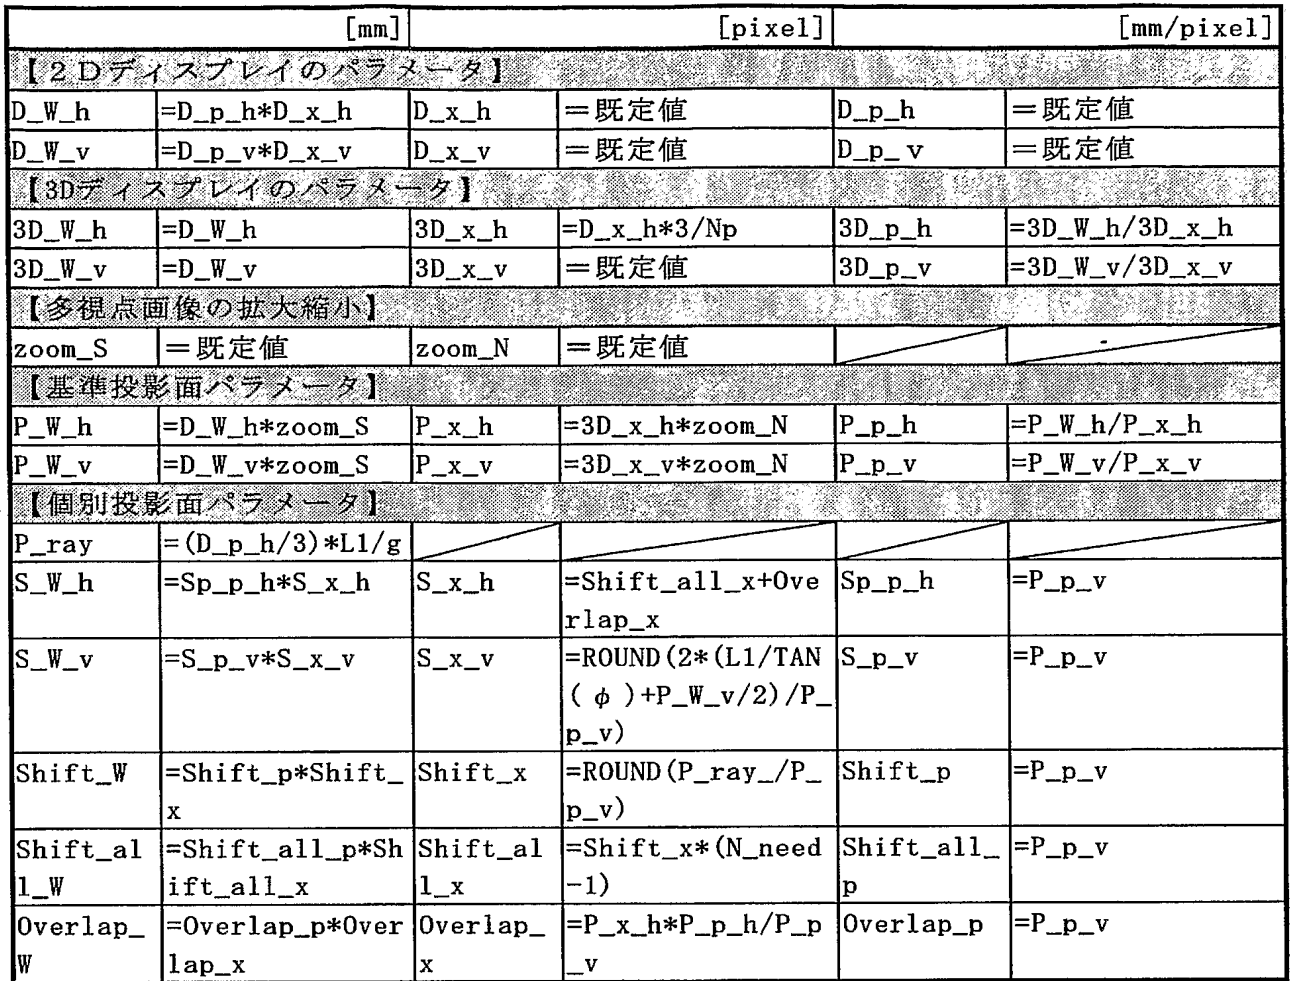 [mm] [pixel] [mm/pixel]
【２Ｄディスプレイのパラメータ】
D_W_h =D_p_h*D_x_h D_x_h ＝既定値 D_p_h ＝既定値
D_W_v =D_p_v*D_x_v D_x_v ＝既定値 D_p_ｖ ＝既定値
【3Dディスプレイのパラメータ】
3D_W_h =D_W_h 3D_x_h =D_x_h*3/Np 3D_p_h =3D_W_h/3D_x_h
3D_W_v =D_W_v 3D_x_v ＝既定値 3D_p_v =3D_W_v/3D_x_v
【多視点画像の拡大縮小】
zoom_S ＝既定値 zoom_N ＝既定値
【基準投影面パラメータ】
P_W_h =D_W_h*zoom_S P_x_h =3D_x_h*zoom_N P_p_h =P_W_h/P_x_h
P_W_v =D_W_v*zoom_S P_x_v =3D_x_v*zoom_N P_p_v =P_W_v/P_x_v
【個別投影面パラメータ】
P_ray =(D_p_h/3)*L1/g
S_W_h =Sp_p_h*S_x_h S_x_h =Shift_all_x+Ove Sp_p_h =P_p_v
rlap_x
S_W_v =S_p_v*S_x_v S_x_v =ROUND(2*(L1/TAN S_p_v =P_p_v
(φ)+P_W_v/2)/P_
p_v)
Shift_W =Shift_p*Shift_ Shift_x =ROUND(P_ray_/P_ Shift_p =P_p_v
x p_v)
Shift_al =Shift_all_p*Sh Shift_al =Shift_x*(N_need Shift_all_ =P_p_v
l_W ift_all_x l_x -1) p
Overlap_ =Overlap_p*Over Overlap_ =P_x_h*P_p_h/P_p Overlap_p =P_p_v
W lap_x x _v